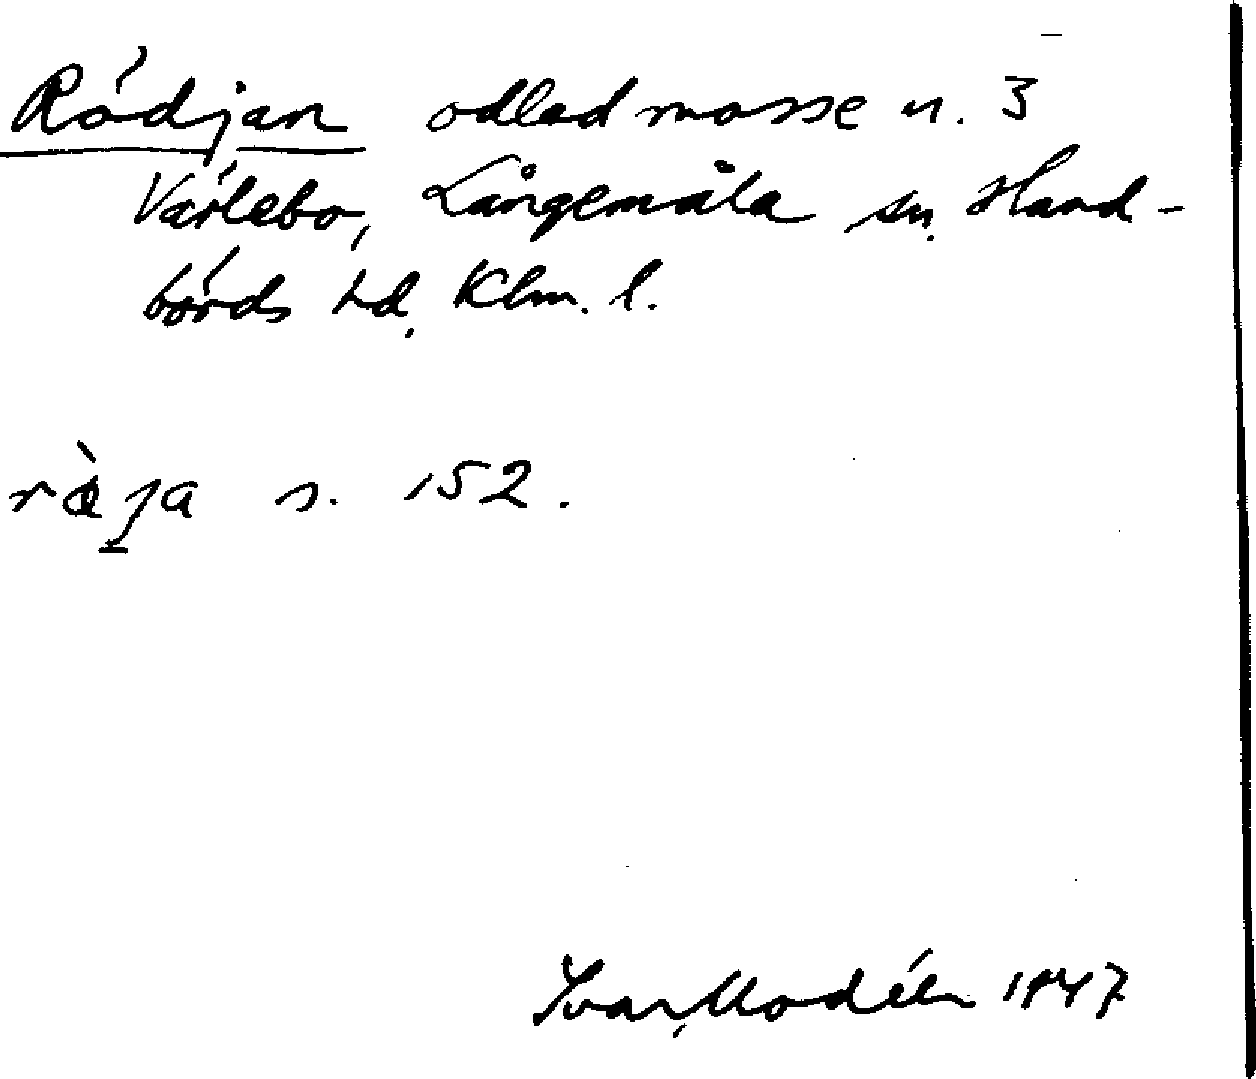 Rödjan odlad mosse n. 3
Värlebo, Långemåla sn. Hand-
börds hd. Klm. l.
s. 152.
Ivar Modéer 1947